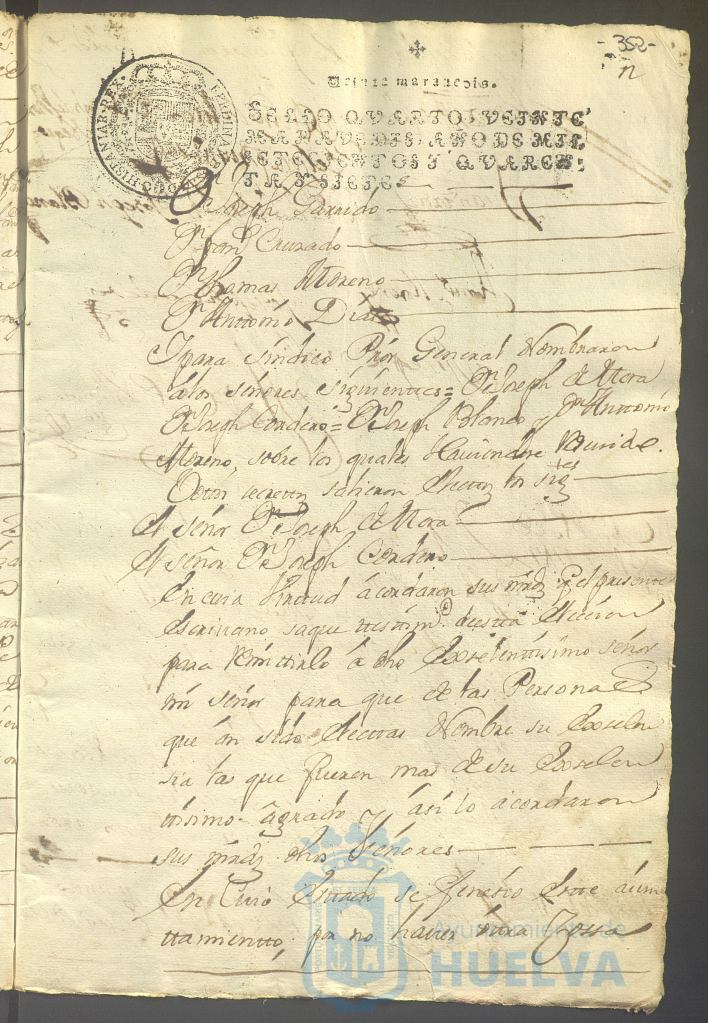 -352-
n
Veinte maravedis.
SELLO QVARTO, VEINTE
MARAVEDIS, AÑO DE MIL
SETECIENTOS Y QVAREN-
TA Y SIETE.
HISPANIAR. REX.
Dn Joseph Garrido
Dn Franco Cruzado
Dn Thomas Moreno
Dn Anttonio Diaz
Y para Síndico Prór General Nombraron
a los señores siguienttes = Dn Joseph de Mora
Dn Joseph Cordero = Dn Joseph Blanco y Dn Anttonio
Moreno, sobre los quales haviendose
Votos secretos salieron electos los sigtes
El señor Dn Joseph de Mora
El señor Dn Joseph Cordero
En cuia Virttud acordaron sus mrds q el presente
Escrivano saque ttesttimo de estta Elección
para remittirlo á dho Exselenttísimo señor
mi señor para que de las Personas
que án sido electas Nombre su Exselen
sia las que fueren mas de su Exselen
ttísimo agrado y así lo acordaron
sus mrds dhos Señores
En Cuio Esttado se fenesio estte aiun
ttamientto, por no haver ottra Cossa
Ayuntamiento de
HUELVA